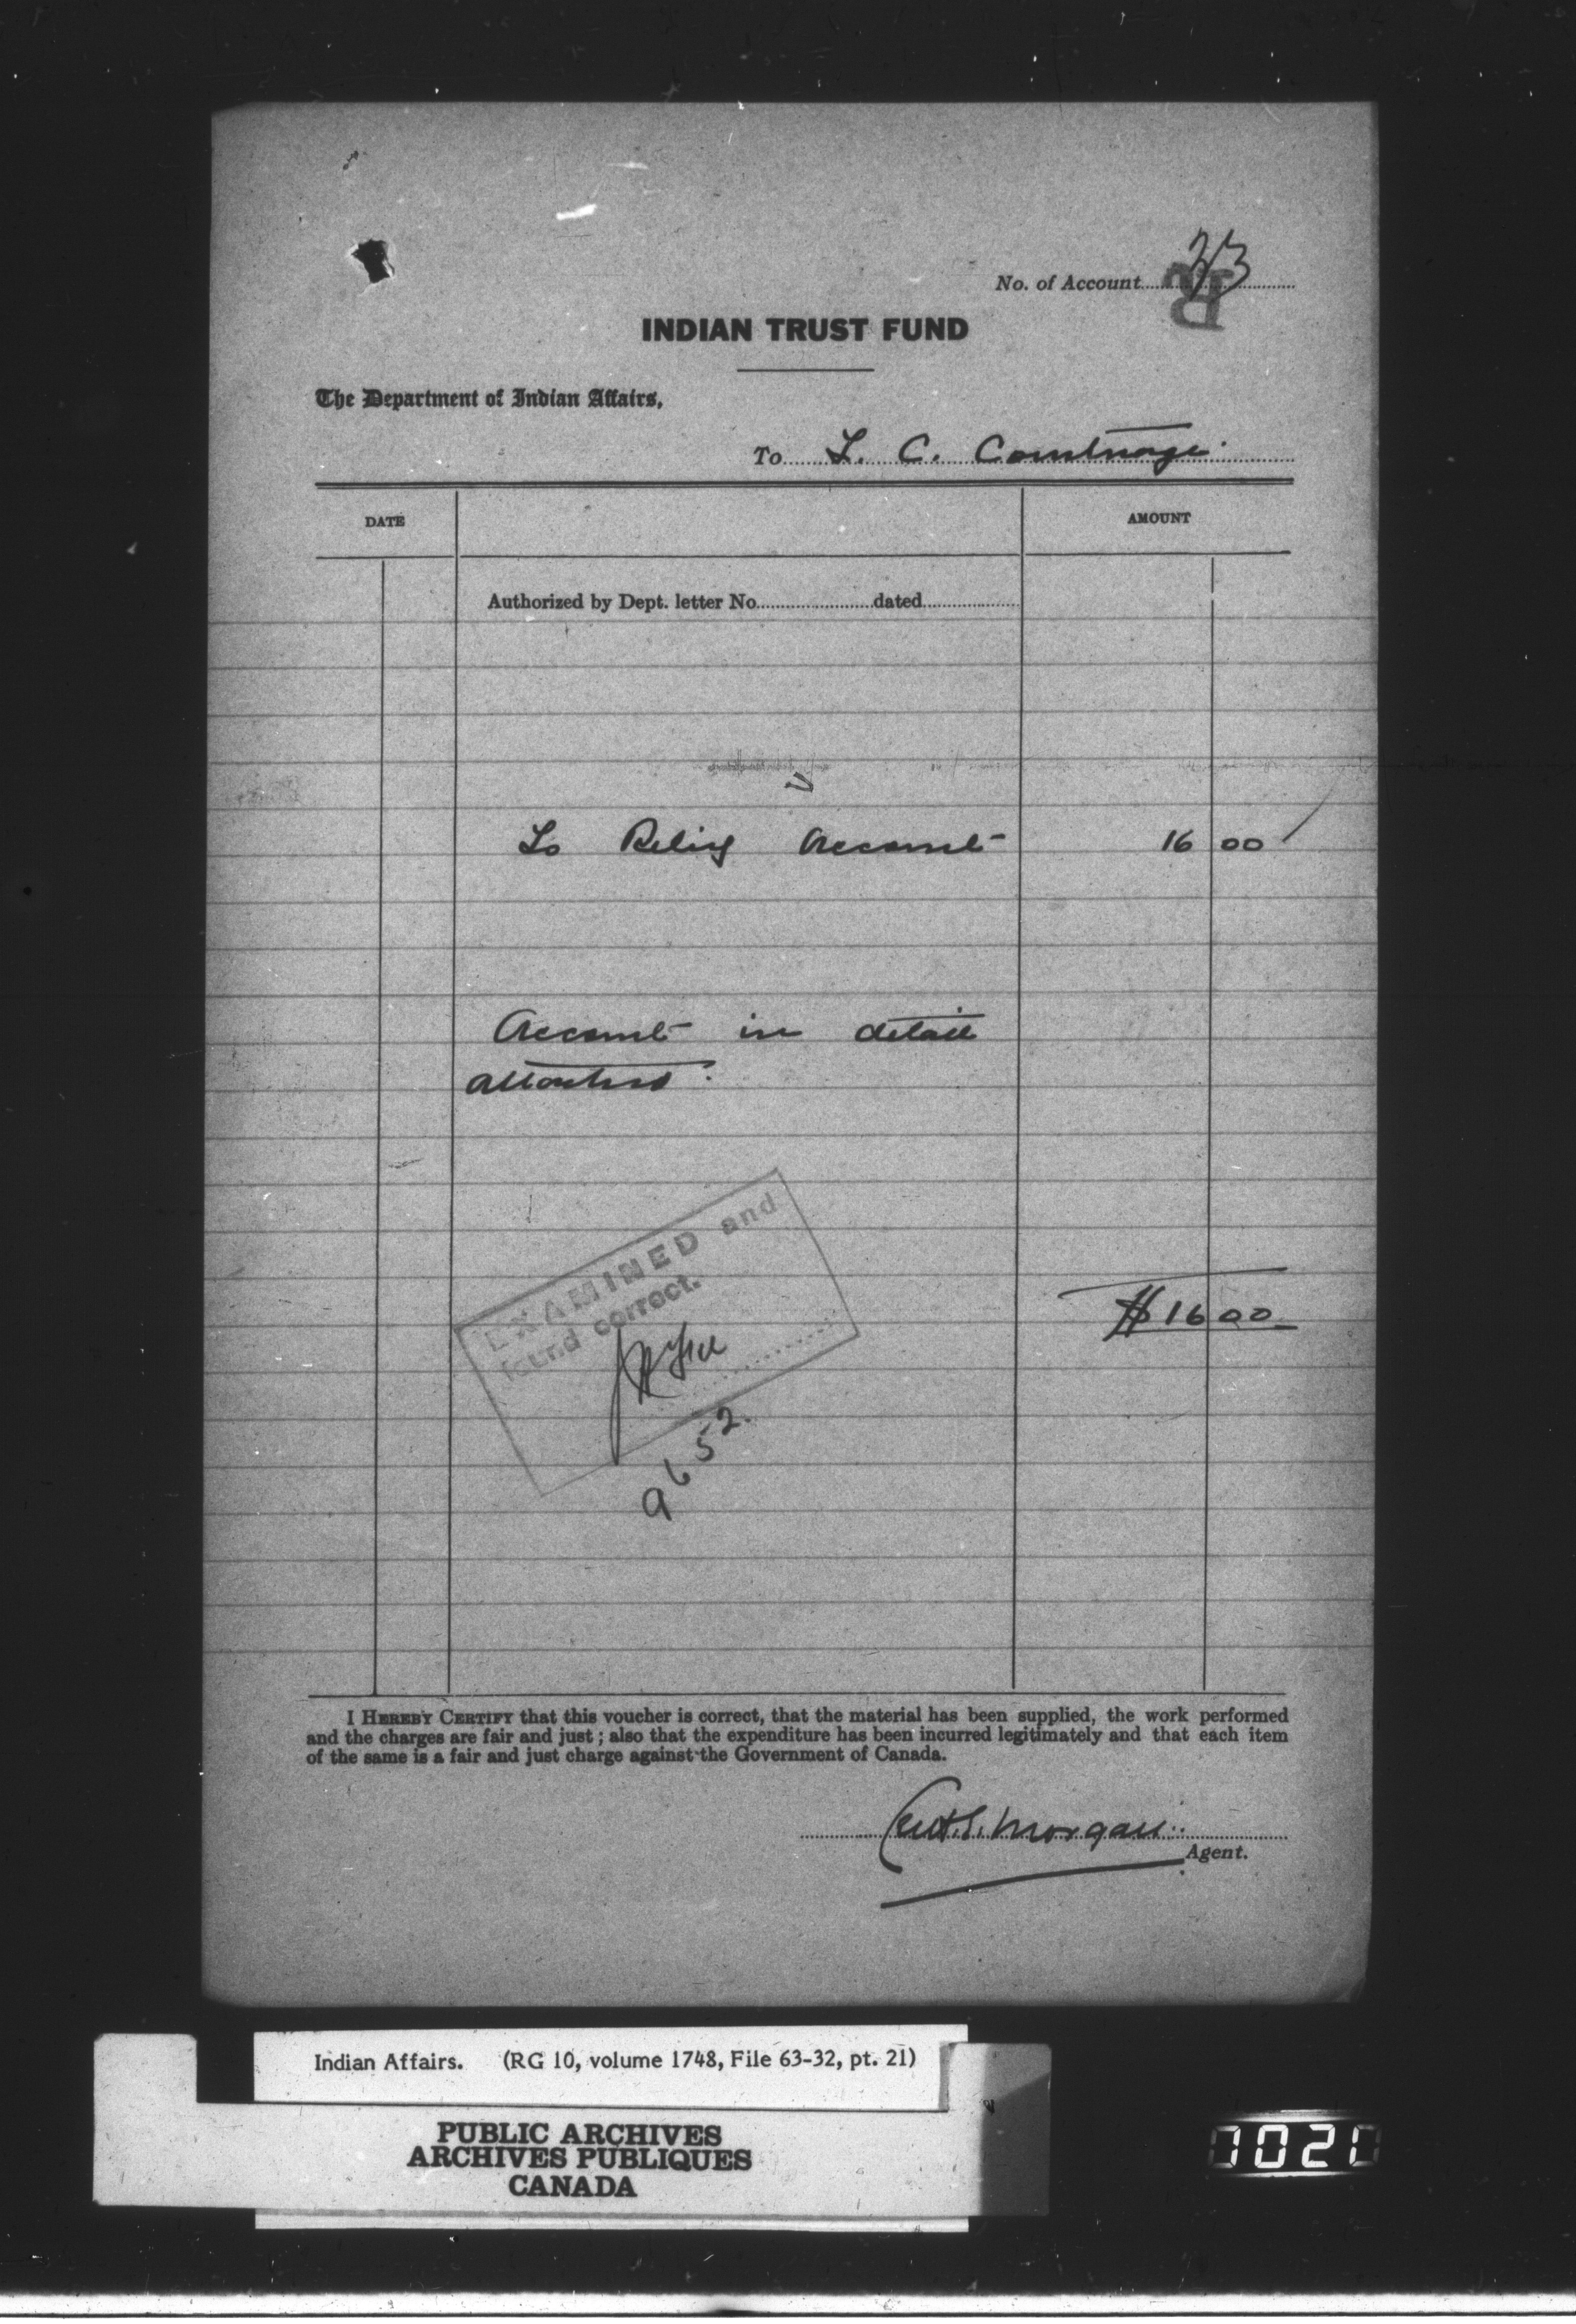 No. of Account 33
R
INDIAN TRUST FUND
The Department of Indian Affairs,
To L. C.
DATE AMOUNT
Authorized by Dept. letter No. dated
To Relief Account 16 00
Account in detail
attached.
EXAMINED and
found correct.
9652.
$ 16 00
I HEREBY CERTIFY that this voucher is correct, that the material has been supplied, the work performed
and the charges are fair and just; also that the expenditure has been incurred legitimately and that each item
of the same is a fair and just charge against the Government of Canada.
Morgan
Agent.
Indian Affairs. (RG 10, volume 1748, File 63-32, pt. 21)
PUBLIC ARCHIVES
ARCHIVES PUBLIQUES
CANADA